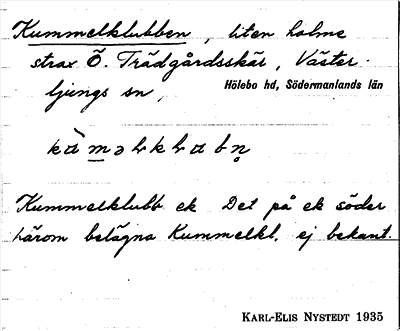 Kummelklubben, liten holme
strax Ö. Trädgårdsskär, Väster-
ljungs sn, Hölebo hd, Södermanlands län
Kummelklubb ek Det på ek söder
härom belägna Kummelkl. ej bekant.
KARL-ELIS NYSTEDT 1935